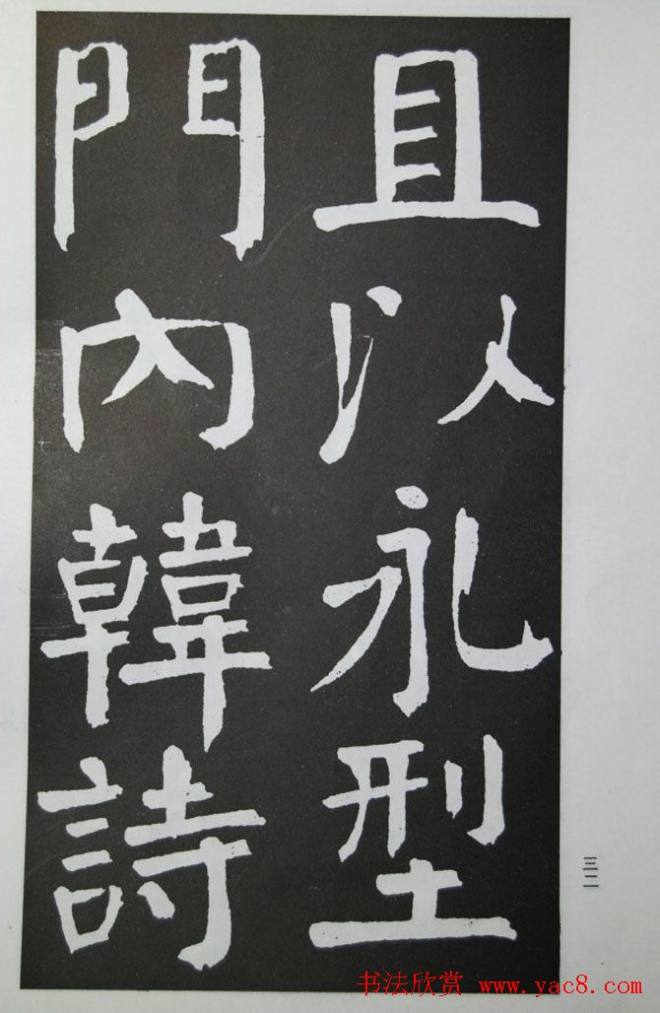 且以礼型
門內韓詩
三二
书法欣赏 www.yac8.com